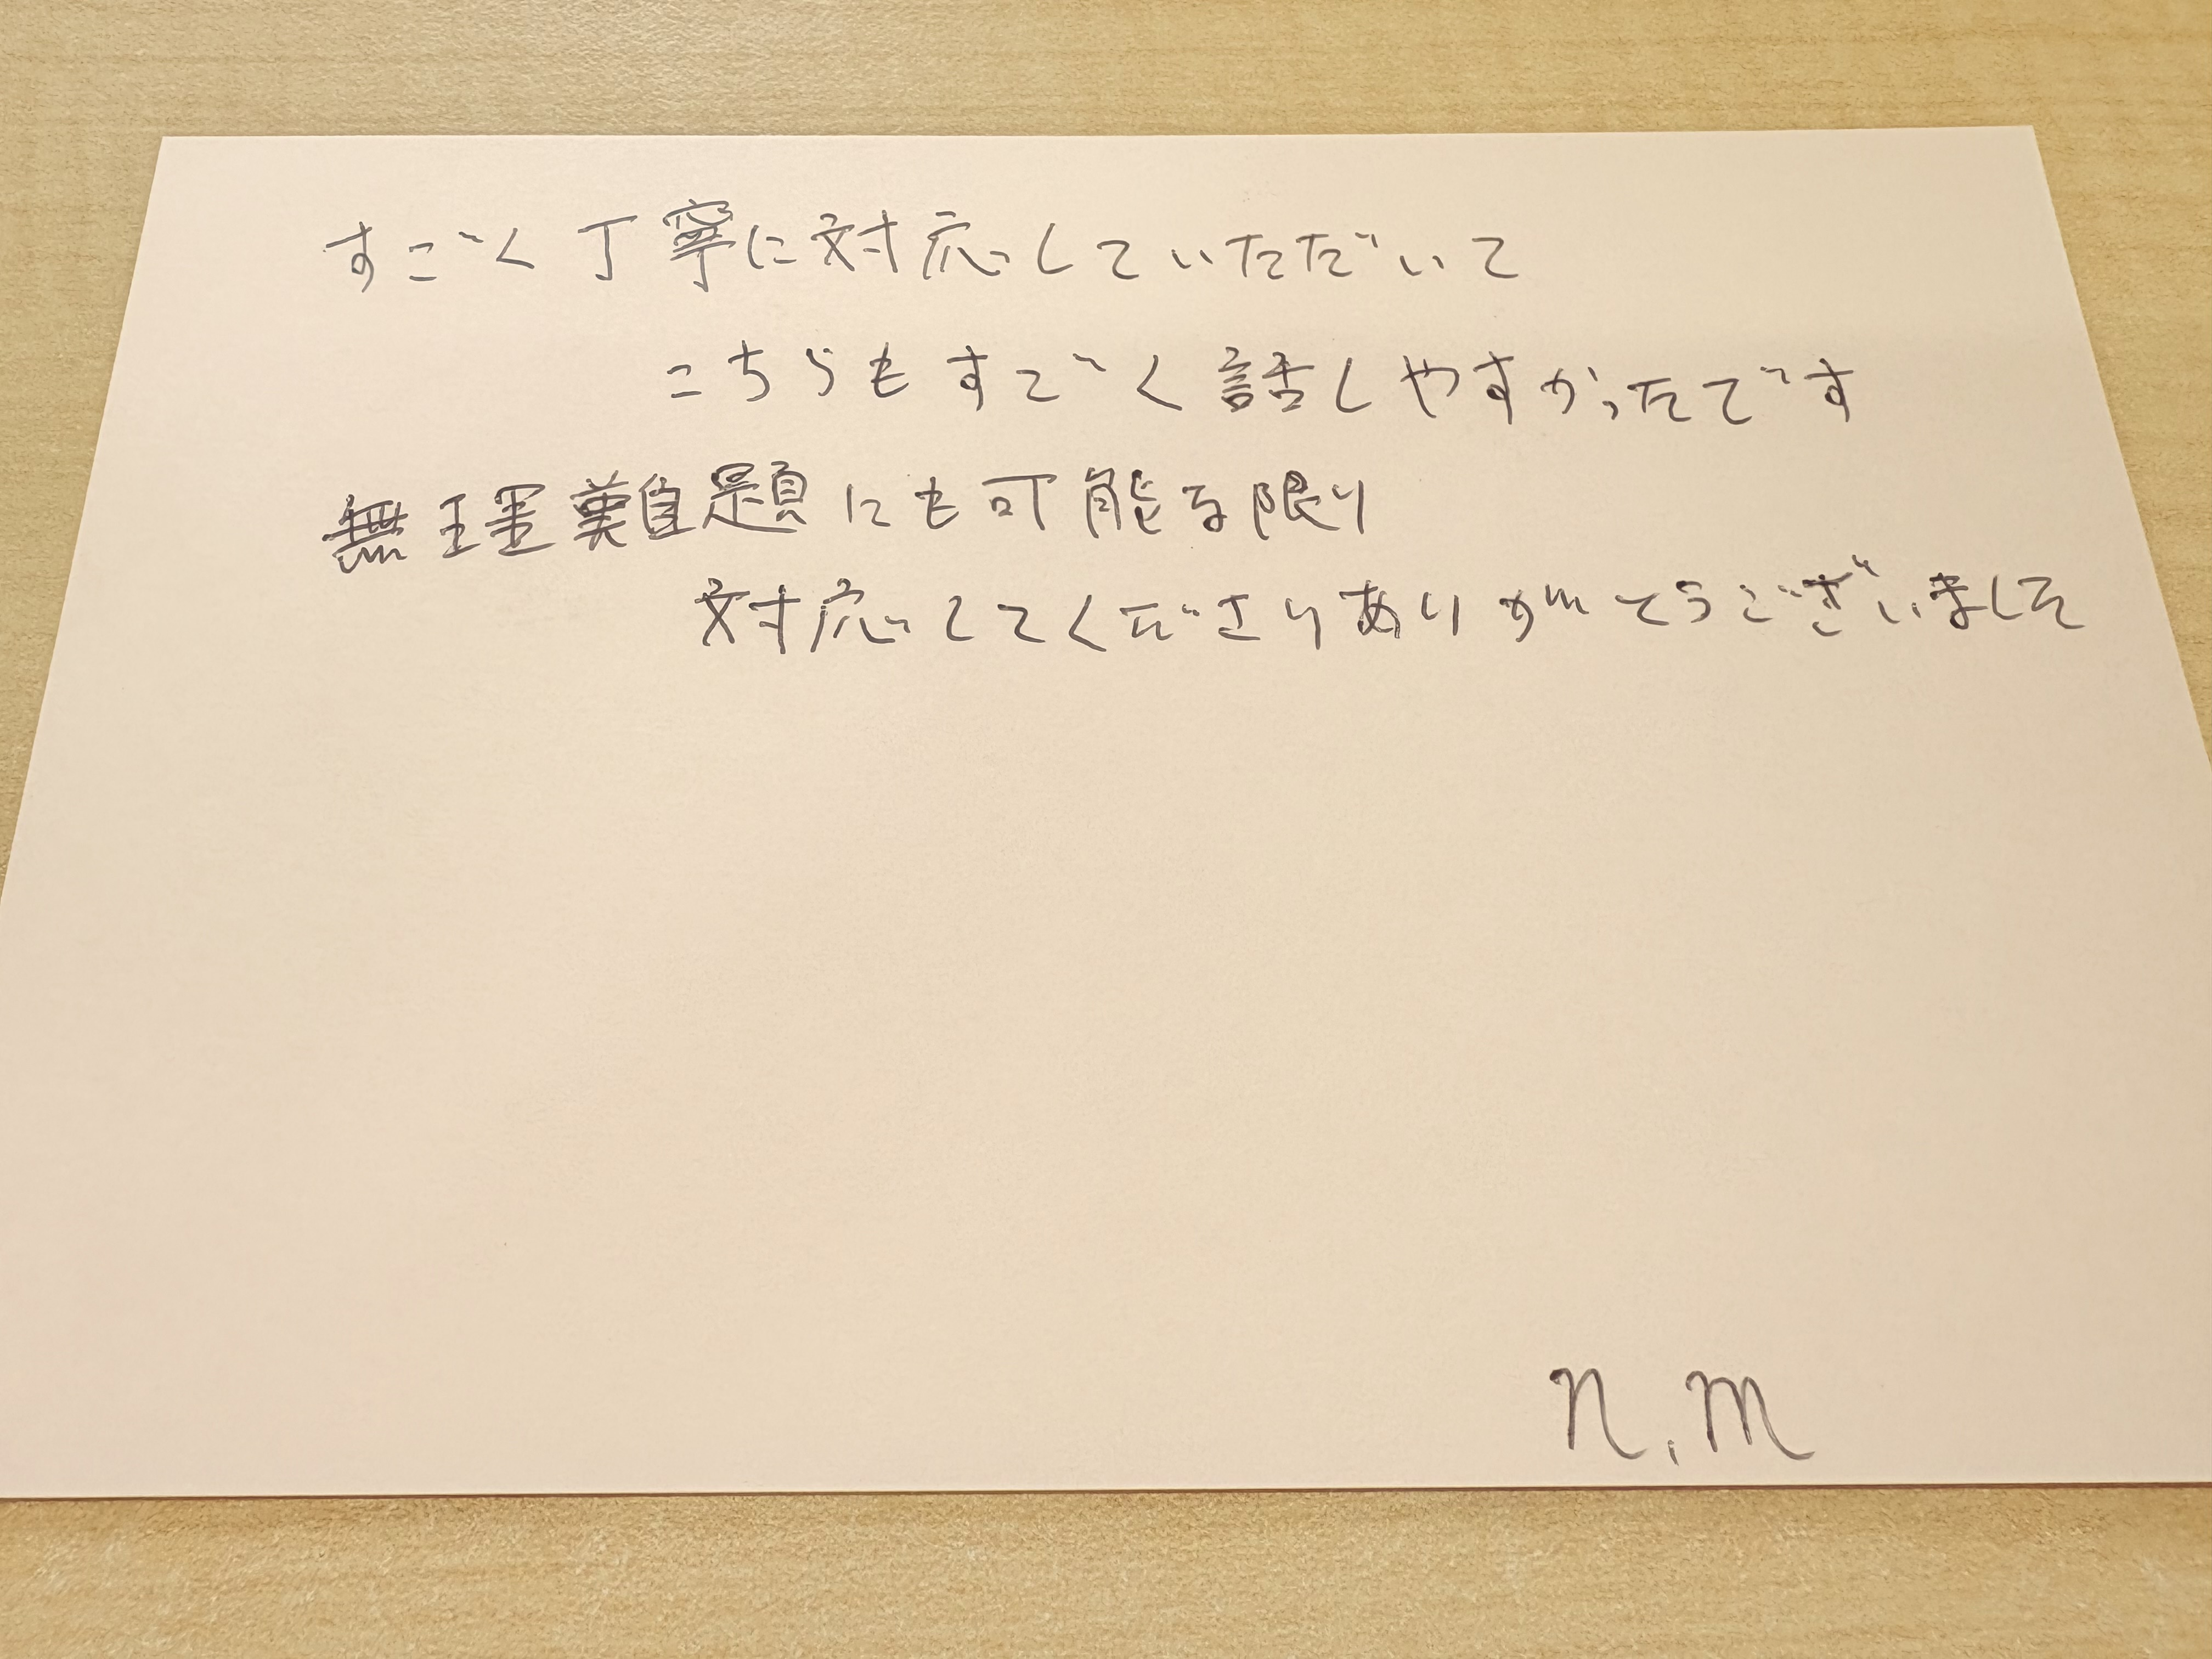 すごく丁寧に対応していただいて
こちらもすごく話しやすかったです
無理難題にも可能な限り
対応してくださりありがとうございました
n.m